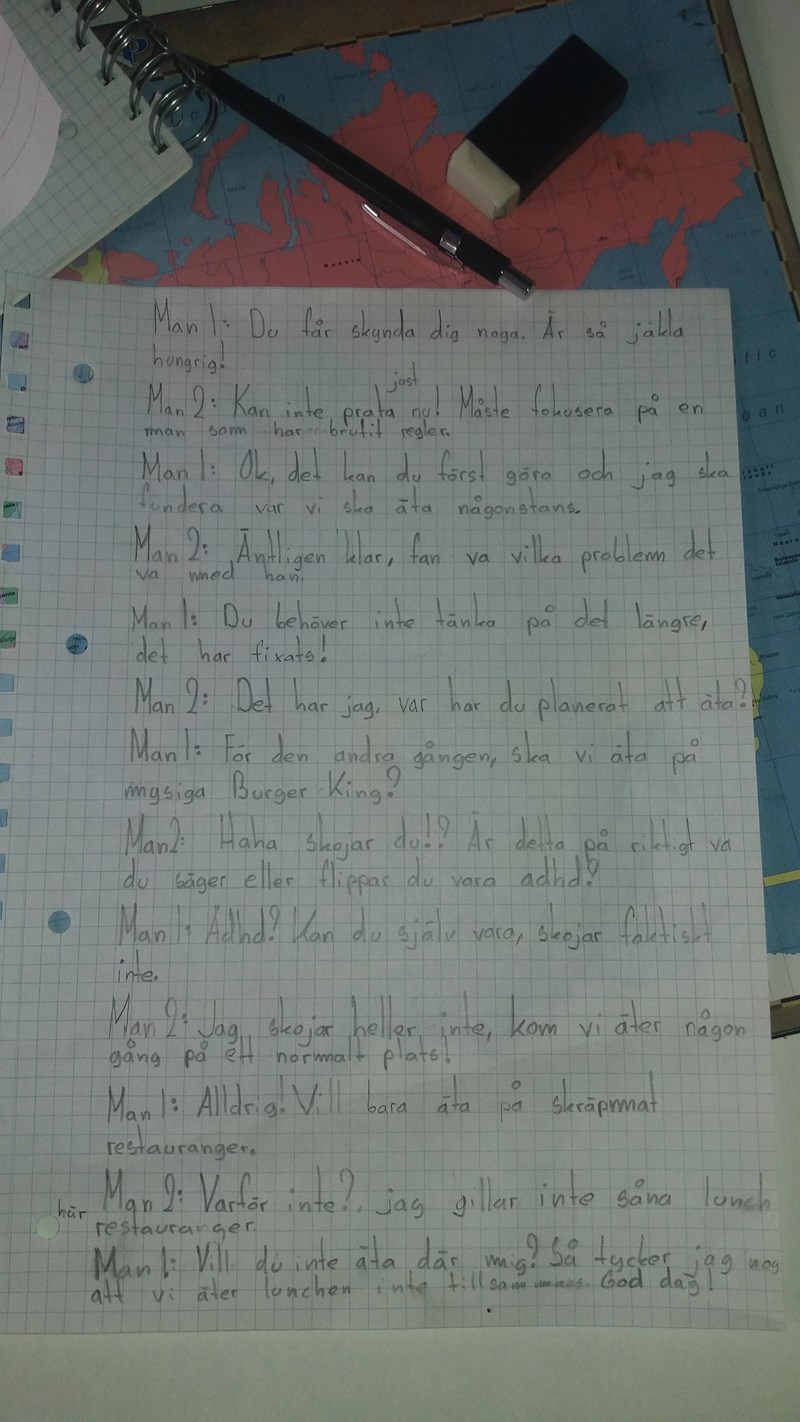 Man 1: Du får skynda dig noga. Är så jäkla
hungrig!
just
Man 2: Kan inte prata nu! Måste fokusera på en
man som har brutit regler.
Man 1: Ok, det kan du först göra och jag ska
fundera var vi ska äta någonstans.
Man 2: Äntligen klar, fan va vilka problem det
va med han.
Man 1: Du behöver inte tänka på det längre,
det har fixats!
Man 2: Det har jag, var har du planerat att äta?
Man 1: För den andra gången, ska vi äta på
mysiga Burger King?
Man 2: Haha skojar du!? Är detta på riktigt va
du säger eller flippar du vara adhd?
Man 1: Adhd? Kan du själv vara, skojar faktiskt
inte.
Man 2: Jag skojar heller inte, kom vi äter någon
gång på ett normalt plats!
Man 1: Alldrig! Vill bara äta på skräpmat
restauranger.
Man 2: Varför inte?, jag gillar inte såna lunch
här restauranger.
Man 1: Vill du inte äta där mig? Så tycker jag nog
att vi äter lunchen inte tillsammans. God dag!